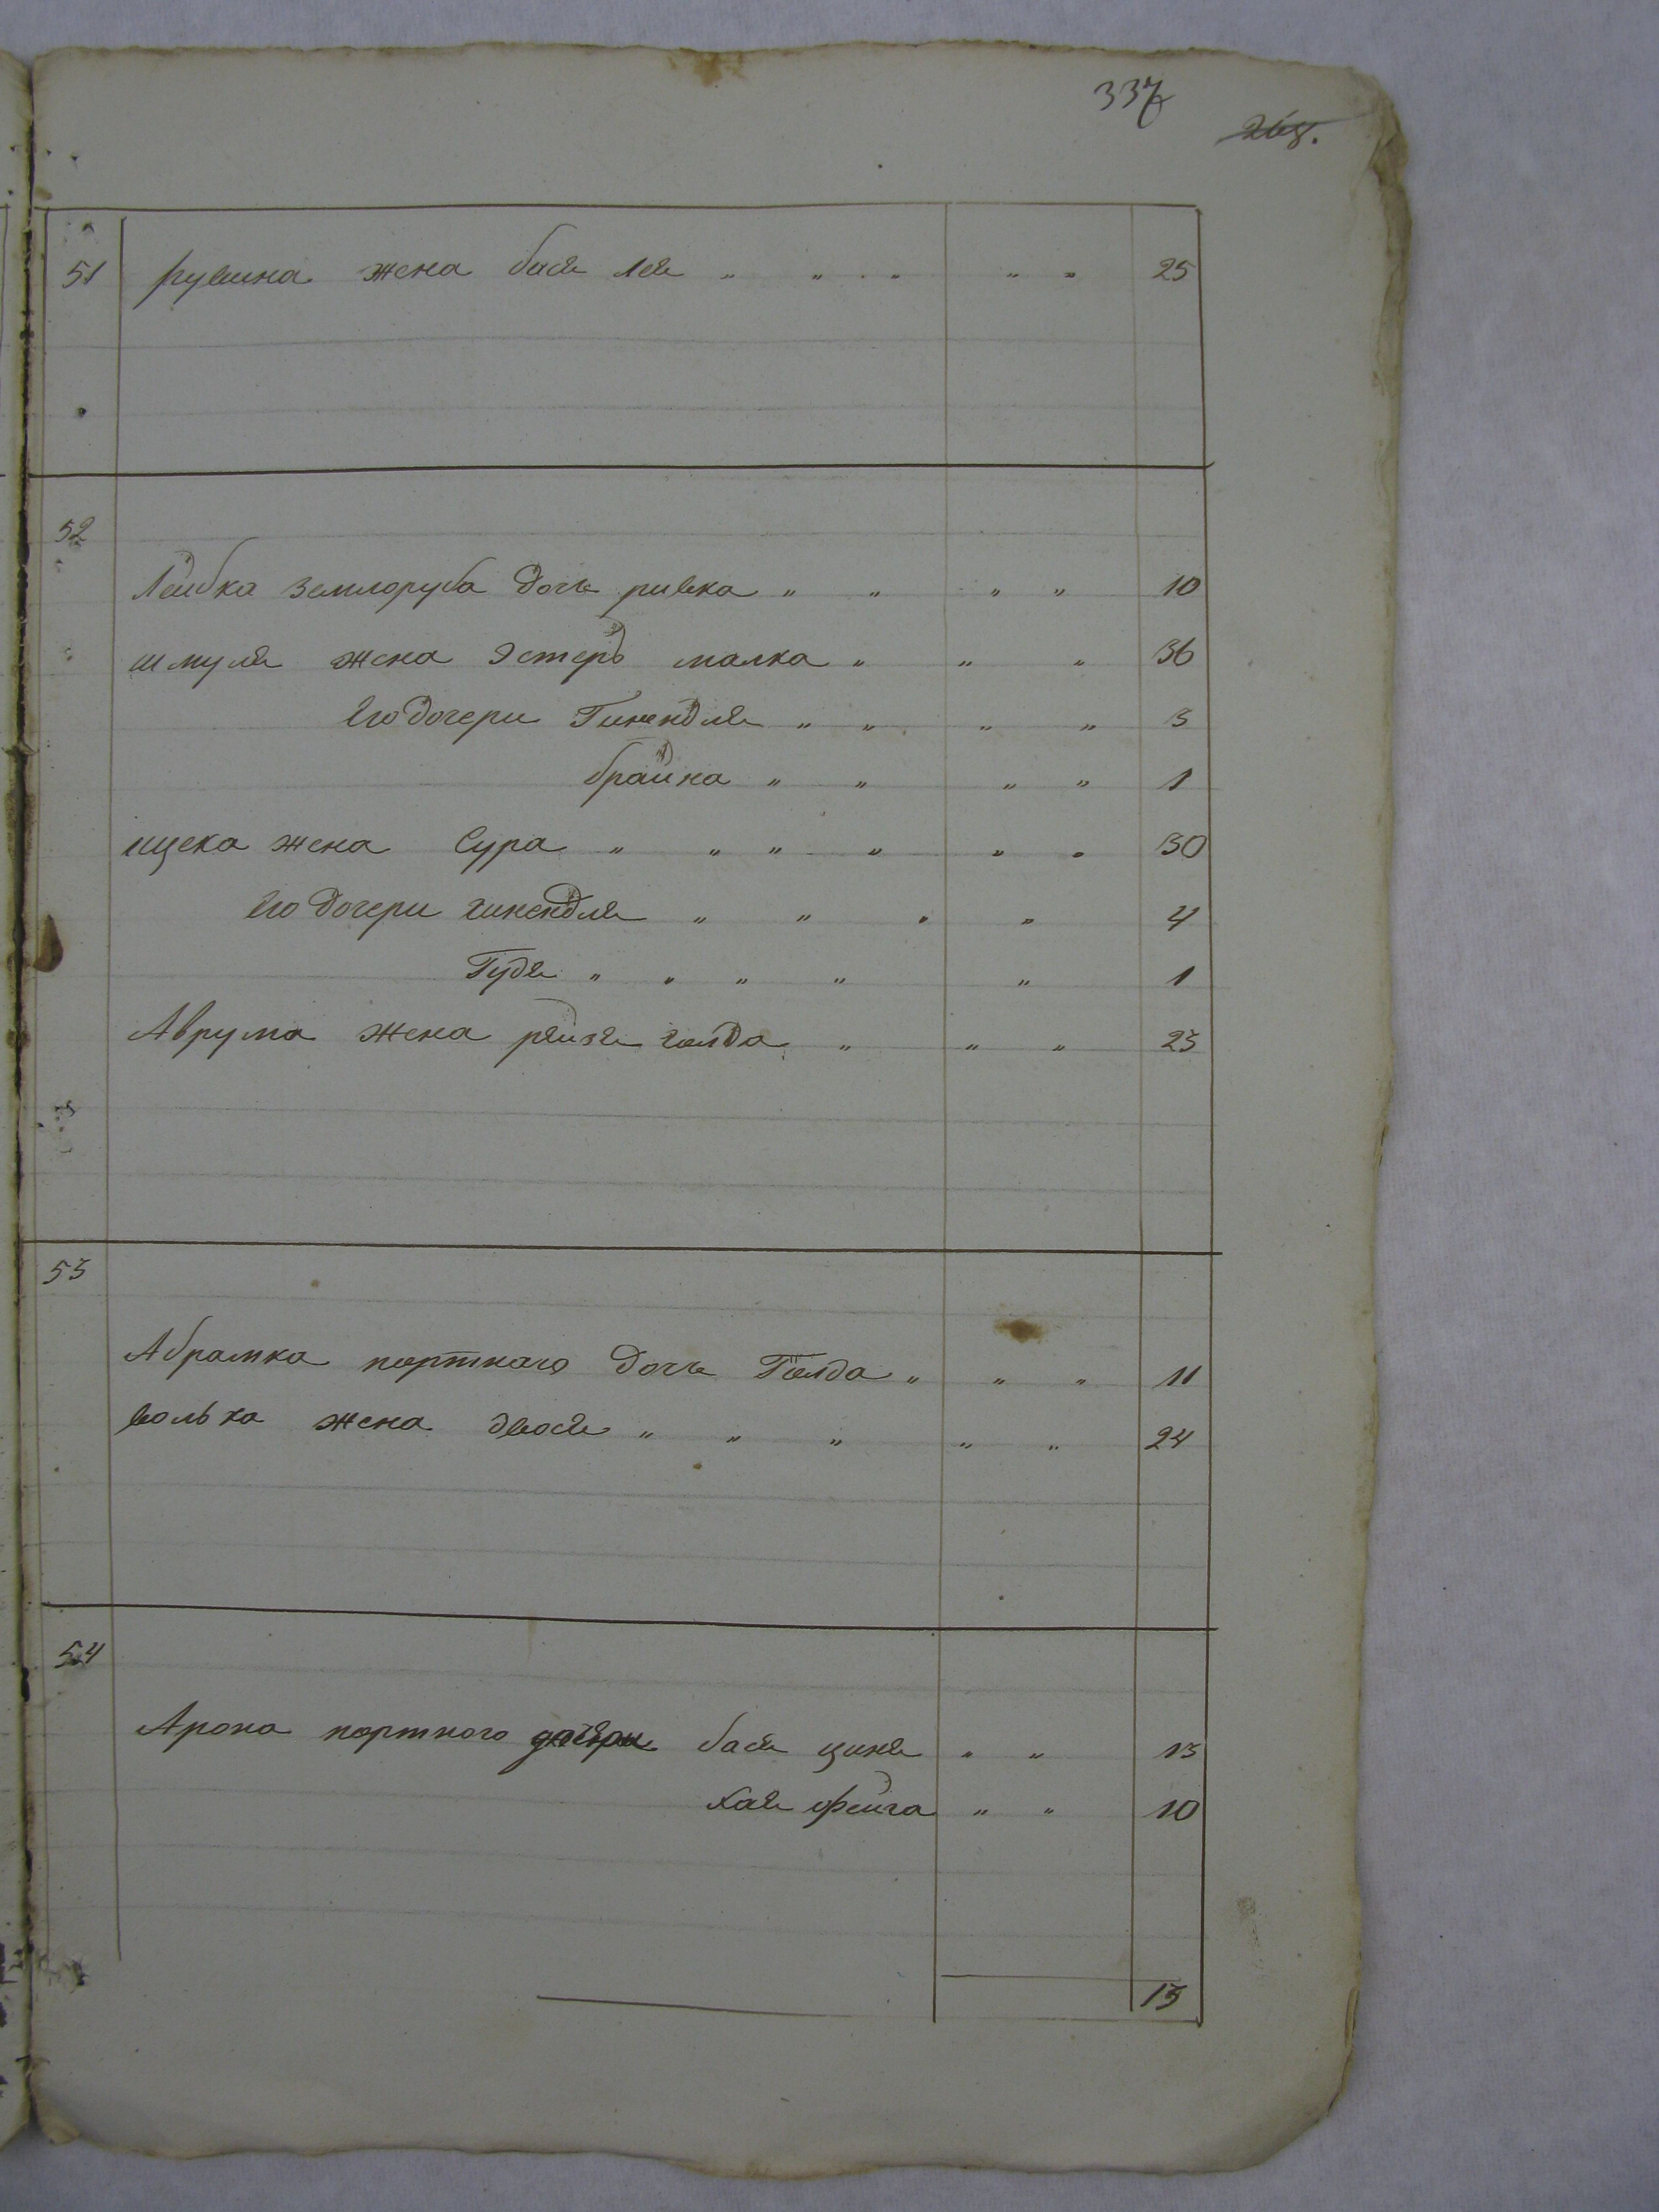 337
268.
51 рувина жена бася лея " " " " " 25
52
Лейбка землоруба дочь ривка " " " " 10
шмуля жена Эстеръ малка " " " 36
Его дочери Гинендля " " " " 3
брайна " " " " 1
ицека жена Сура " " " " " " 30
Его дочери гинендля " " " " 4
Гудя " " " " " 1
Аврума жена рейзя голда " " " 23
53
Абрамка портнаго дочь Голда " " " 11
волька жена двося " " " " " 24
54
Арона портного дочери бася циня " " 13
хая фейга " " 10
13